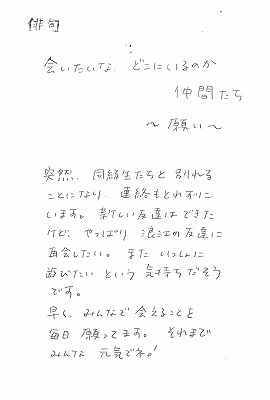 俳句
会いたいな どこにいるのか
仲間たち
～願い～
突然、同級生たちと別れる
ことになり、連絡もとれずに
います。新しい友達はできた
けど、やっぱり浪江の友達に
再会したい。また いっしょに
遊びたいという気持ちだそう
です。
早く、みんなで会えることを
毎日願ってます。それまで
みんな元気でネ!